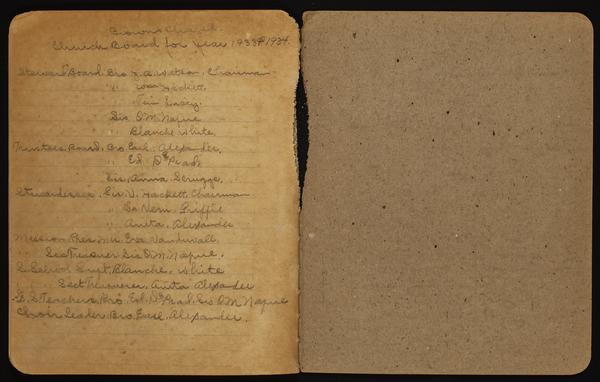 Browns Chapel
Church Board for Year 1933 & 1934
Steward Board. Bro A. Watson, Chairman
" Hackett.
" Jim Lacey.
Sis O.M. Napue
" Blanche White.
Trustees Board, Bro Earl. Alexander.
" Ed. DePrad
Sis. Anna. Scruggs.
Stewardesses. Sis. V. Hackett, Chairman
" La Vern. Griffie
" Anita. Alexander
Mission Pres. Mrs. Eva Vanduvall.
Sect Treasurer Sis O.M. Napue.
S. School Supt, Blanche. White
Sect Treasurer, Anita Alexander
S. S Teachers, Bro. Ed. DePrad, Sis O.M. Napue
Choir Leader Bro. Earl. Alexander.